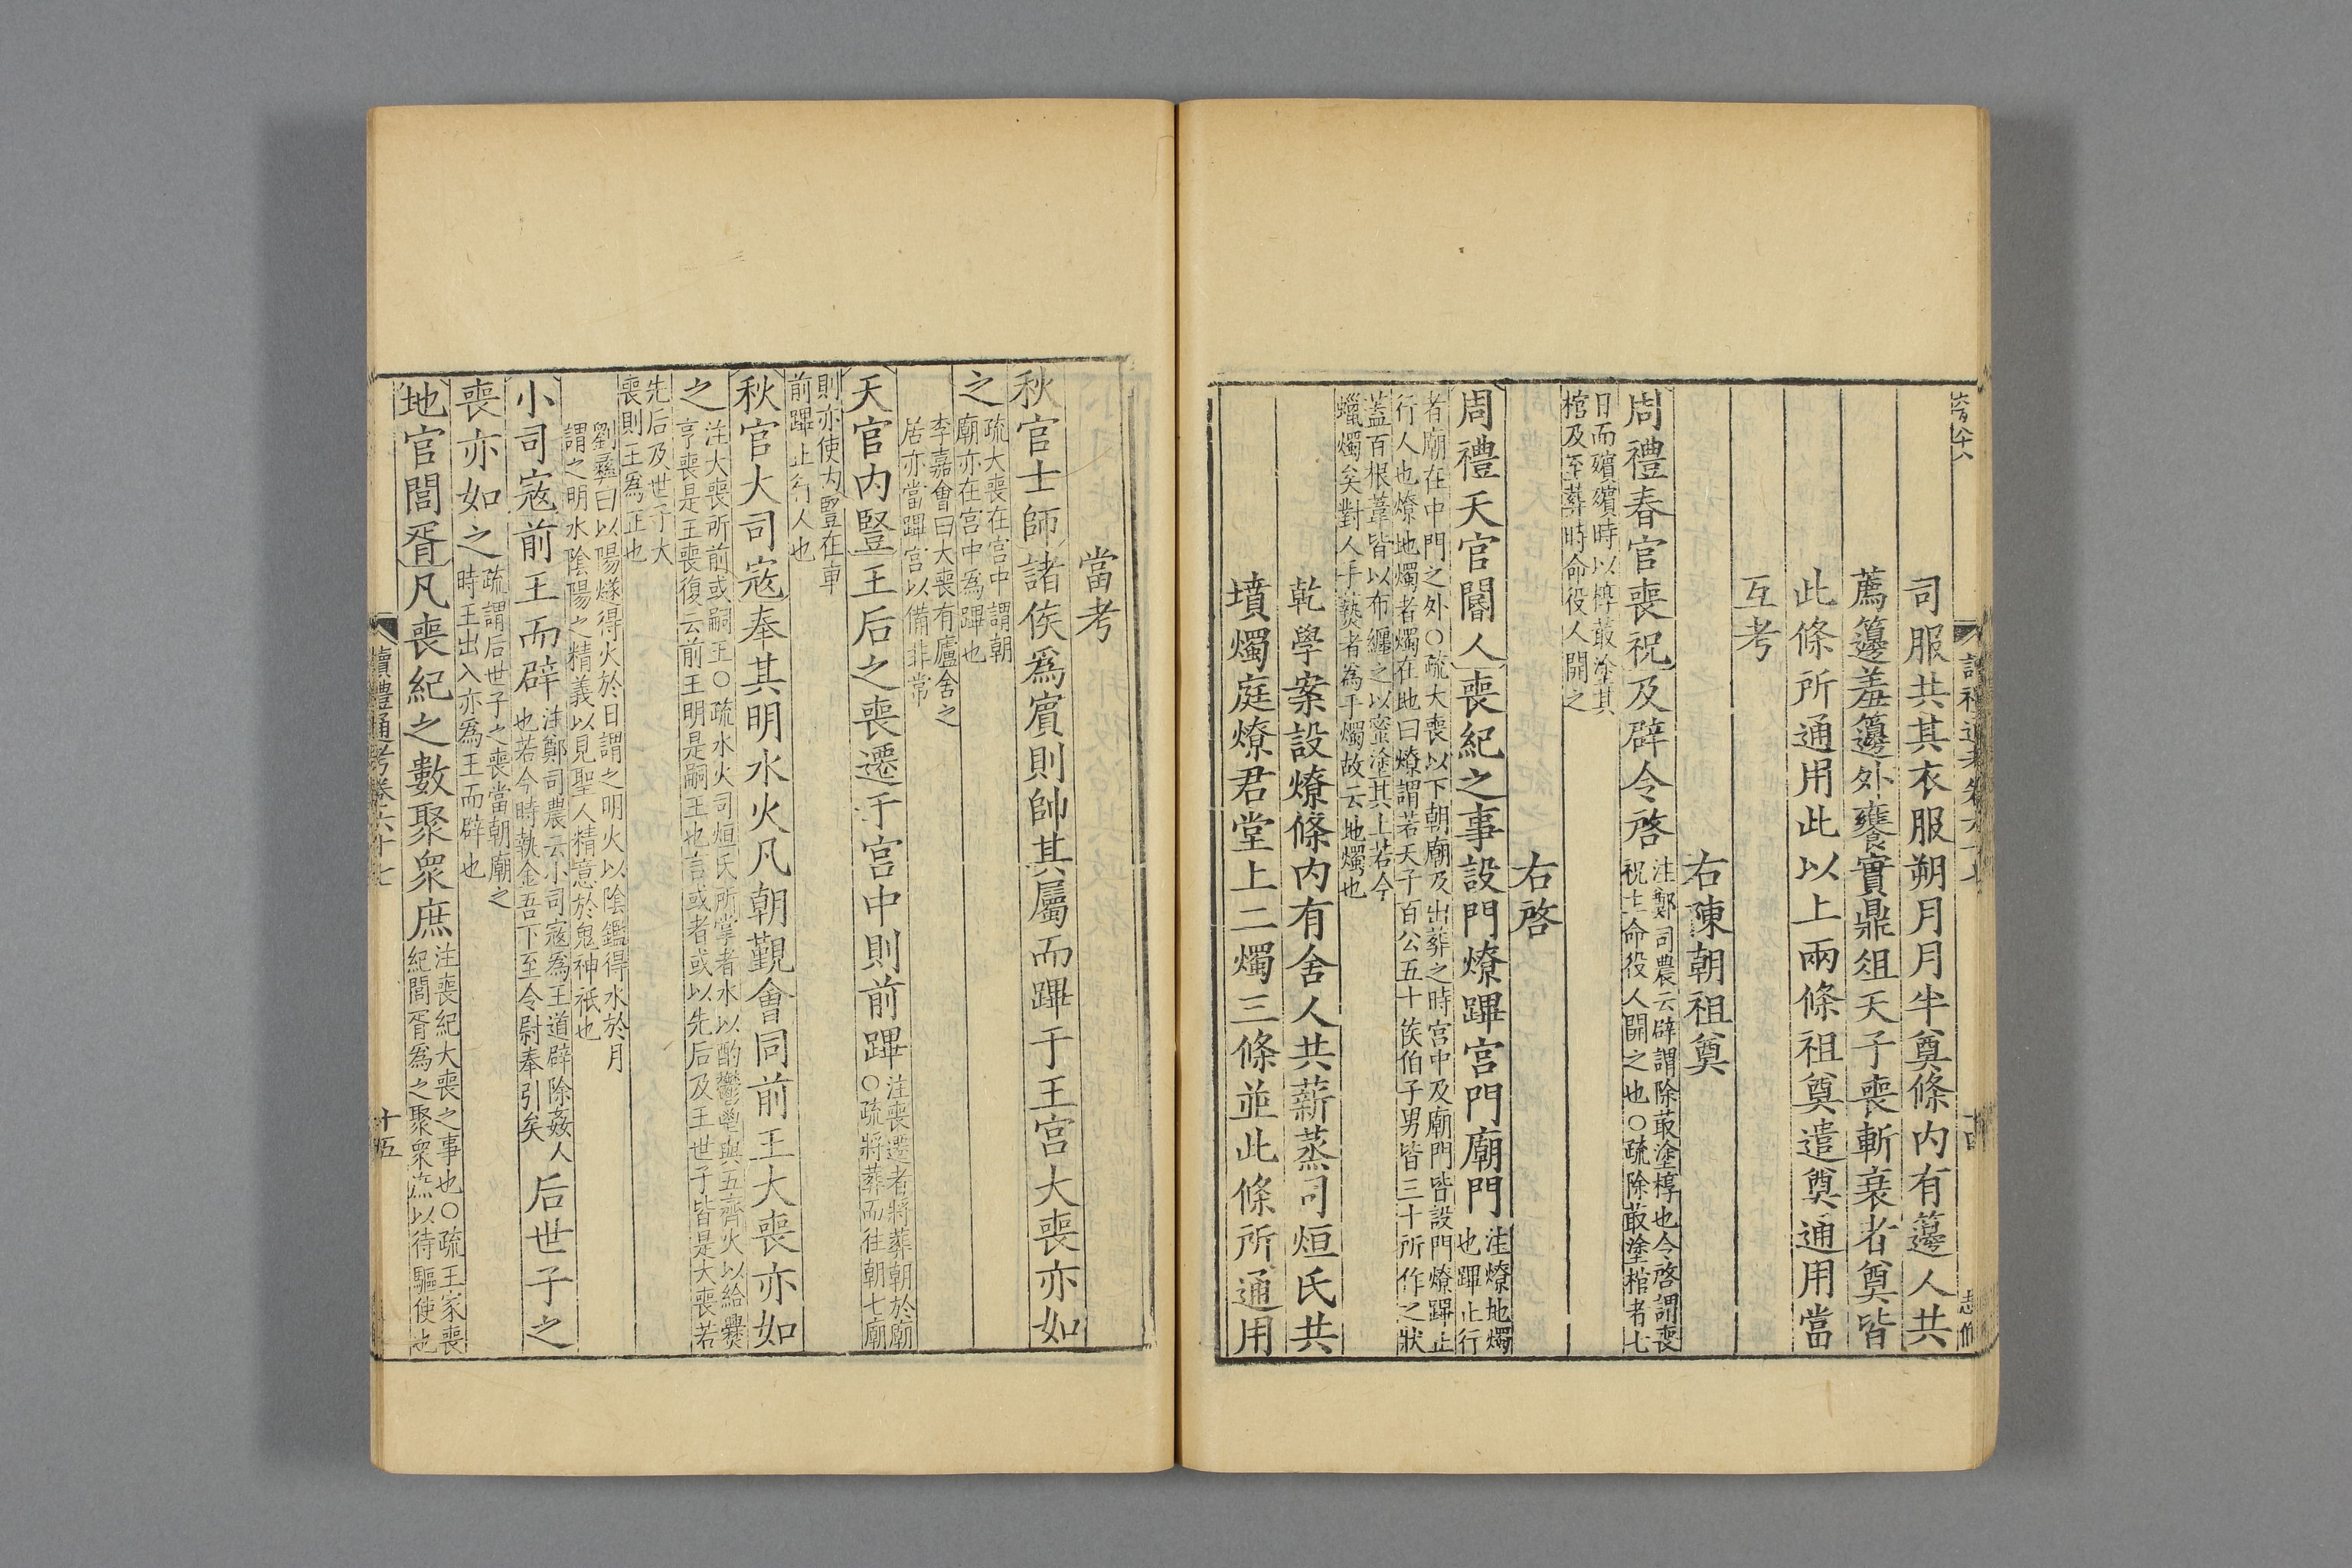 司服共其衣服朔月月半奠條内有籩人共
薦籩羞籩外饔實鼎俎天子喪斬衰者奠皆
此條所通用此以上兩條祖奠遣奠通用當
互考
右陳朝祖奠
周禮春官喪祝及辟令啓
注鄭司農云辟謂除菆塗椁也令啓謂喪
祝主命役人開之也○疏除菆塗棺者七
日而殯殯時以椁菆塗其
棺及至葬時命役人開之
右啓
周禮天官閽人喪紀之事設門燎蹕宫門廟門
注燎地燭
也蹕止行
者廟在中門之外○疏大喪以下朝廟及出葬之時宫中及廟門皆設門燎蹕止
行人也燎地燭者燭在地曰燎謂若天子百公五十侯伯子男皆三十所作之狀
蓋百根葦皆以布纒之以蜜塗其上若今
蠟燭矣對人手爇者為手燭故云地燭也
乾學案設燎條内有舍人共薪蒸司烜氏共
墳燭庭燎君堂上二燭三條並此條所通用
當考
秋官士師諸侯爲賔則帥其屬而蹕于王宫大喪亦如
之
疏大喪在宫中謂朝
廟亦在宫中爲蹕也
李嘉會曰大喪有廬舍之
居亦當蹕宫以備非常
天官内豎王后之喪遷于宫中則前蹕
注喪遷者將葬朝於廟
○疏將葬而往朝七廟
則亦使内豎在車
前蹕止行人也
秋官大司寇奉其明水火凡朝覲會同前王大喪亦如
之
注大喪所前或嗣王○疏水火司烜氏所掌者水以酌鬱鬯與五齊火以給爨
亨喪是王喪復云前王明是嗣王也言或者或以先后及王世子皆是大喪若
先后及世子大
喪則王爲正也
劉彝曰以陽燧得火於日謂之明火以陰鑑得水於月
謂之明水陰陽之精義以見聖人精意於鬼神祇也
小司寇前王而辟
注鄭司農云小司寇爲王道辟除姦人
也若今時執金吾下至令尉奉引矣
后世子之
喪亦如之
疏謂后世子之喪當朝廟之
時王出入亦爲王而辟也
地官閭胥凡喪紀之數聚衆庶
注喪紀大喪之事也○疏王家喪
紀閭胥爲之聚衆庶以待驅使也
讀禮通考卷六十七
十五